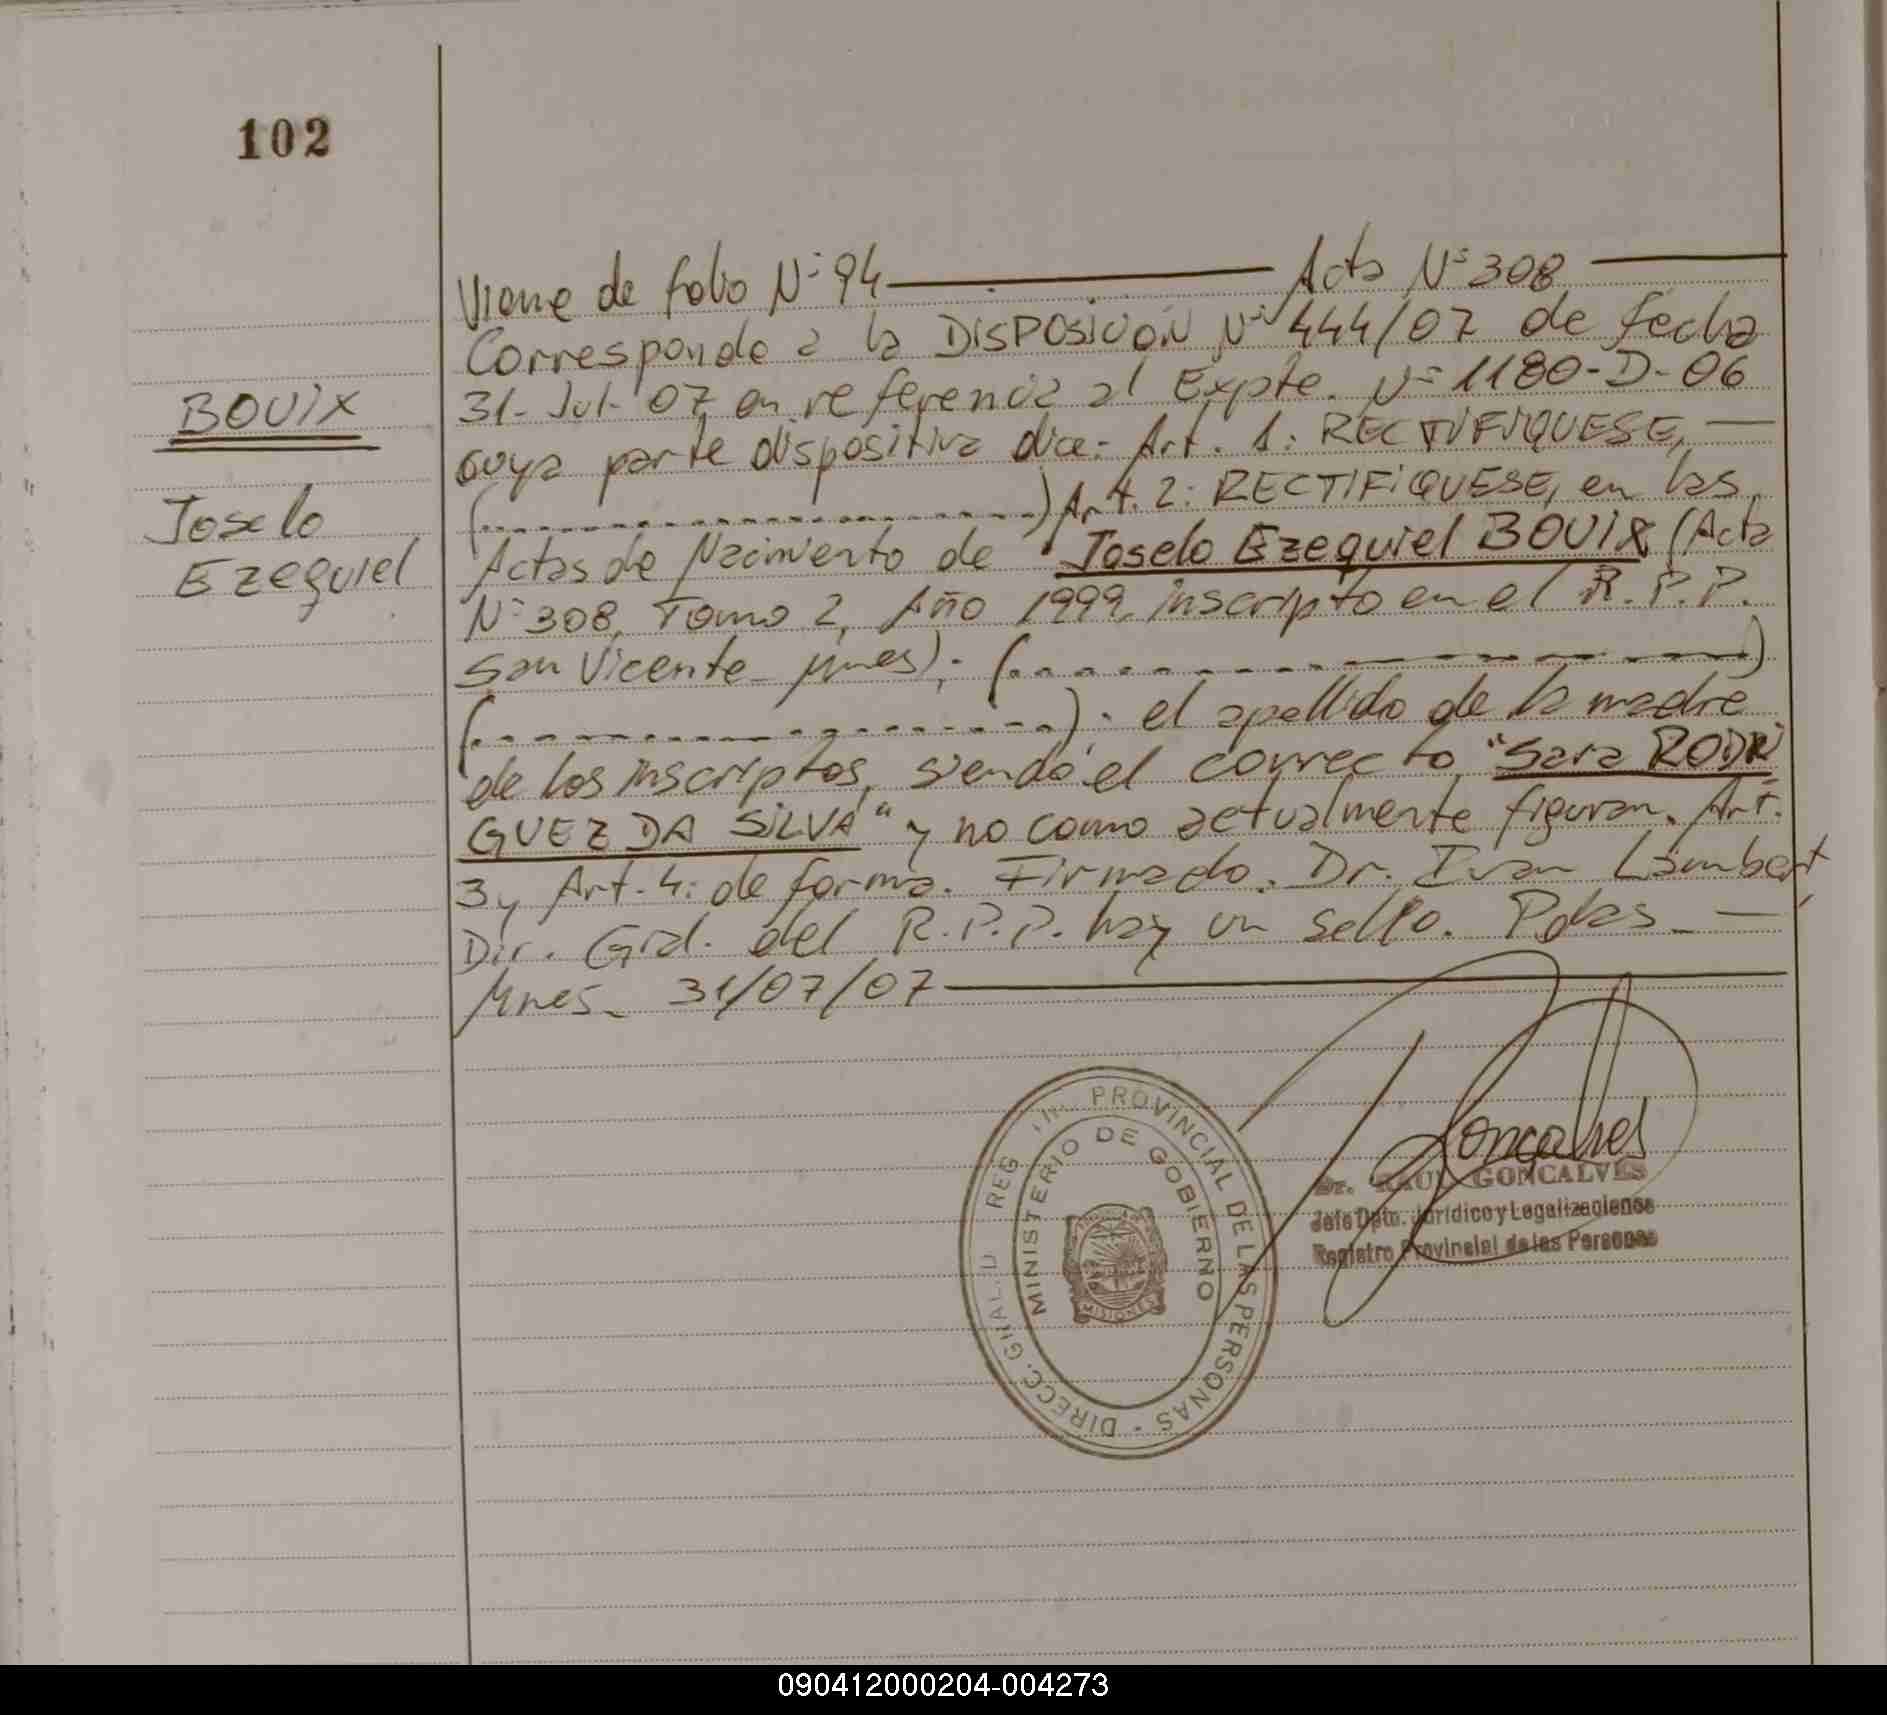 102
BOUIX
Joselo
Ezequiel
Viene de folio Nº 94 ——— Acta Nº 308 ———
Corresponde a la DISPOSICIÓN Nº 444/07 de fecha
31-Jul-07 en referencia al Expte. Nº 1180-D-06
cuya parte dispositiva dice: Art. 1: RECTIFIQUESE, —
(.....................) Art. 2: RECTIFIQUESE, en las
Actas de Nacimiento de Joselo Ezequiel BOUIX (Acta
Nº 308, Tomo 2, Año 1999, inscripto en el R.P.P.
San Vicente - Mnes); (.....................)
(.....................): el apellido de la madre
de los inscriptos, siendo el correcto "Sara RODRI
GUEZ DA SILVA" y no como actualmente figuran. Art.
3 y Art. 4: de forma. Firmado. Dr. Ivan Lambert,
Dir. Gral. del R.P.P. hay un sello. Pdas. —
Mnes. 31/07/07 ———
Goncalves
Dr. RAUL GONCALVES
Jefe Dpto. Jurídico y Legalizaciones
Registro Provincial de las Personas
PROVINCIAL DE LAS PERSONAS - DIRECC. GRAL. D REG
MINISTERIO DE GOBIERNO
MISIONES
090412000204-004273